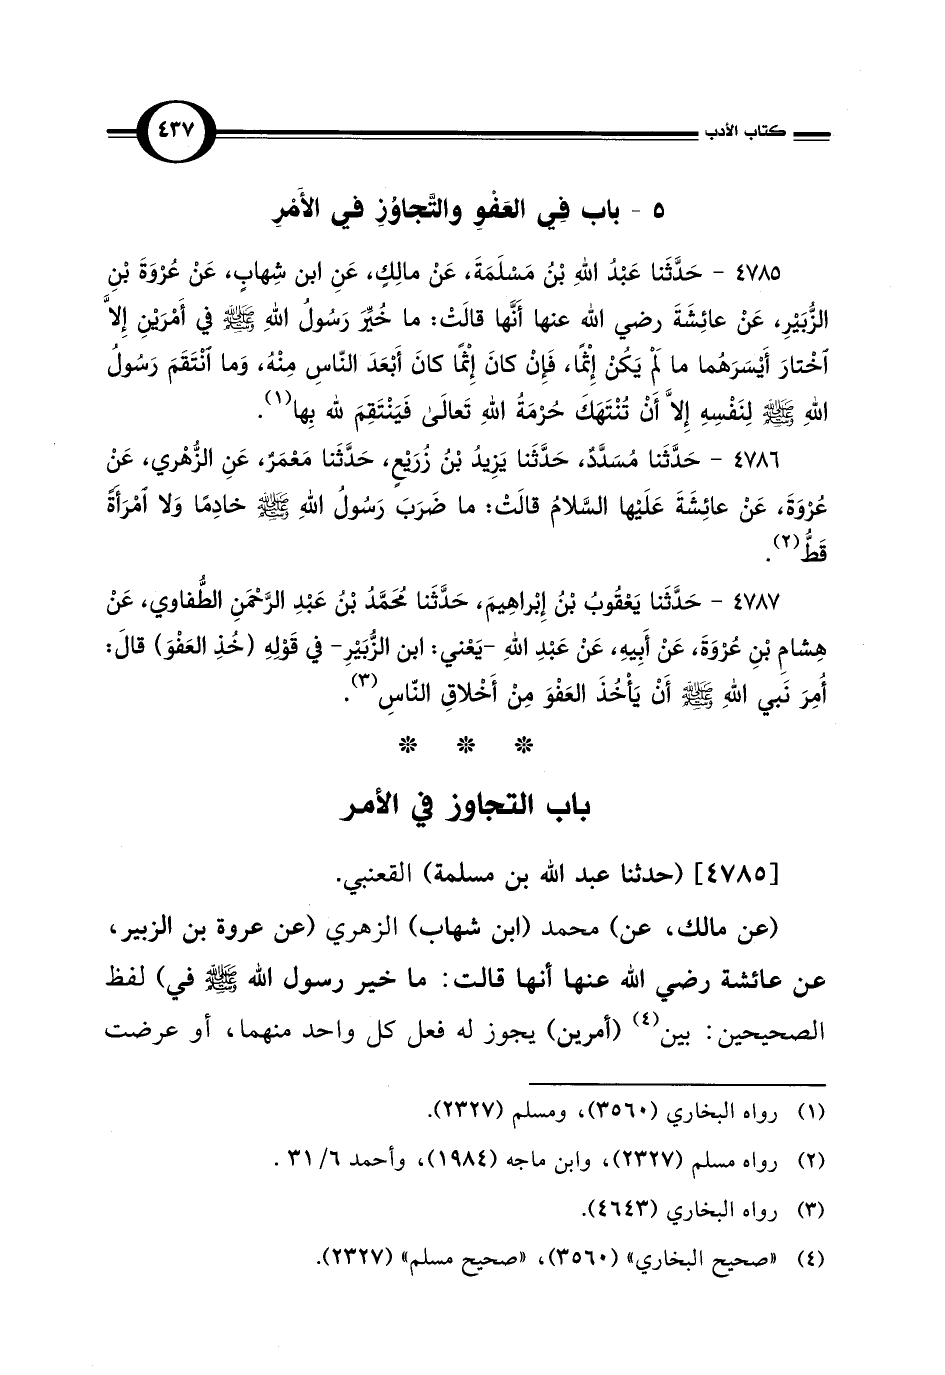 كتاب الأدب ٤٣٧
٥ - باب فِي العَفْوِ والتَّجاوُزِ في الأَمْرِ
٤٧٨٥ - حَدَّثَنا عَبْدُ اللهِ بْنُ مَسْلَمَةَ، عَنْ مالِكٍ، عَنِ ابن شِهابٍ، عَنْ عُرْوَةَ بْنِ
الزُّبَيْرِ، عَنْ عائِشَةَ رضي الله عنها أَنَّها قالَتْ: ما خُيِّرَ رَسُولُ اللهِ ﷺ في أَمْرَيْنِ إِلاَّ
ٱخْتارَ أَيْسَرَهُما ما لَمْ يَكُنْ إِثْمًا، فَإِنْ كانَ إِثْمًا كانَ أَبْعَدَ النّاسِ مِنْهُ، وَما ٱنْتَقَمَ رَسُولُ
اللهِ ﷺ لِنَفْسِهِ إِلاَّ أَنْ تُنْتَهَكَ حُرْمَةُ اللهِ تَعالَىٰ فَيَنْتَقِمَ لله بِها(١).
٤٧٨٦ - حَدَّثَنا مُسَدَّدٌ، حَدَّثَنا يَزِيدُ بْنُ زُرَيْعٍ، حَدَّثَنا مَعْمَرٌ، عَنِ الزُّهْري، عَنْ
عُرْوَةَ، عَنْ عائِشَةَ عَلَيْها السَّلامُ قالَتْ: ما ضَرَبَ رَسُولُ اللهِ ﷺ خادِمًا وَلا ٱمْرَأَةً
قَطُّ(٢).
٤٧٨٧ - حَدَّثَنا يَعْقُوبُ بْنُ إِبْراهِيمَ، حَدَّثَنا مُحَمَّدُ بْنُ عَبْدِ الرَّحْمَنِ الطُّفاوي، عَنْ
هِشامِ بْنِ عُرْوَةَ، عَنْ أَبِيهِ، عَنْ عَبْدِ اللهِ -يَعْني: ابن الزُّبَيْرِ- في قَوْلِهِ (خُذِ العَفْوَ) قالَ:
أُمِرَ نَبي اللهِ ﷺ أَنْ يَأْخُذَ العَفْوَ مِنْ أَخْلاقِ النّاسِ(٣).
* * *
باب التجاوز في الأمر
[٤٧٨٥] (حدثنا عبد الله بن مسلمة) القعنبي.
(عن مالك، عن) محمد (ابن شهاب) الزهري (عن عروة بن الزبير،
عن عائشة رضي الله عنها أنها قالت: ما خير رسول الله ﷺ في) لفظ
الصحيحين: بين(٤) (أمرين) يجوز له فعل كل واحد منهما، أو عرضت
(١) رواه البخاري (٣٥٦٠)، ومسلم (٢٣٢٧).
(٢) رواه مسلم (٢٣٢٧)، وابن ماجه (١٩٨٤)، وأحمد ٦/ ٣١.
(٣) رواه البخاري (٤٦٤٣).
(٤) «صحيح البخاري» (٣٥٦٠)، «صحيح مسلم» (٢٣٢٧).